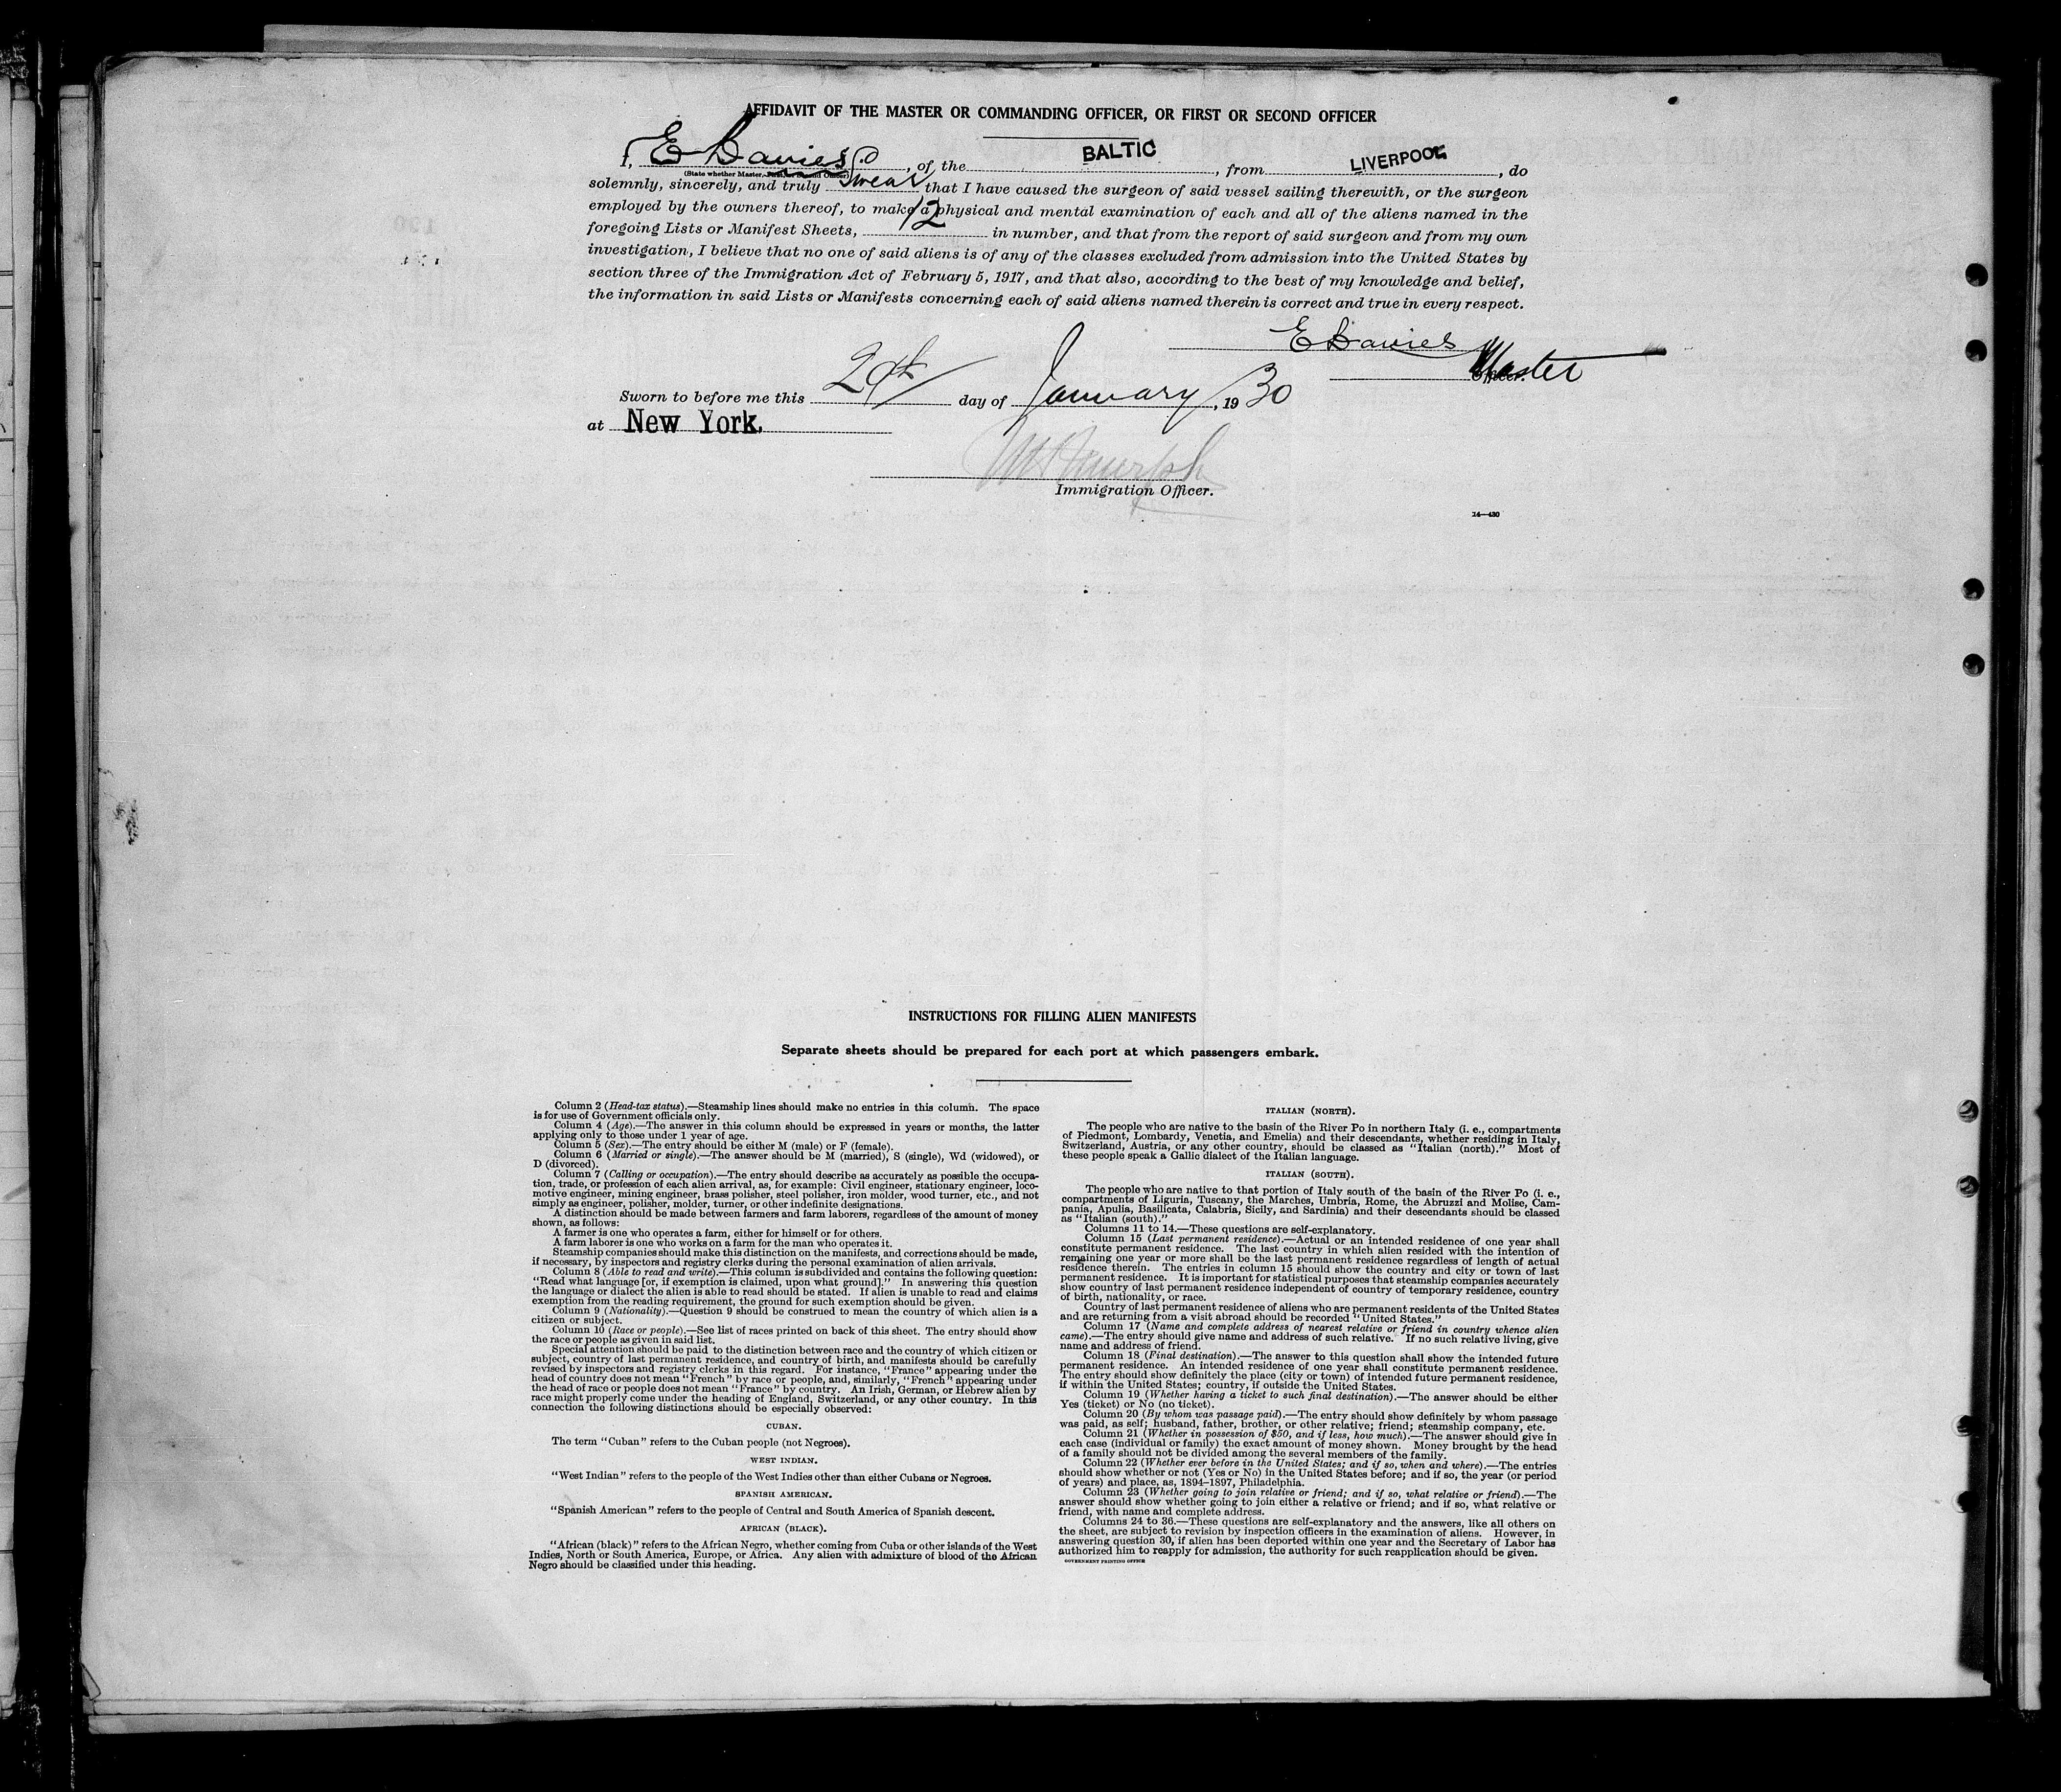 AFFIDAVIT OF THE MASTER OR COMMANDING OFFICER, OR FIRST OR SECOND OFFICER
I, E Davies, of the BALTIC, from LIVERPOOL, do
(State whether Master, First or Second Officer)
solemnly, sincerely, and truly swear that I have caused the surgeon of said vessel sailing therewith, or the surgeon
employed by the owners thereof, to make a physical and mental examination of each and all of the aliens named in the
foregoing Lists or Manifest Sheets, 12 in number, and that from the report of said surgeon and from my own
investigation, I believe that no one of said aliens is of any of the classes excluded from admission into the United States by
section three of the Immigration Act of February 5, 1917, and that also, according to the best of my knowledge and belief,
the information in said Lists or Manifests concerning each of said aliens named therein is correct and true in every respect.
E Davies
Master
Officer.
Sworn to before me this day of January, 1930
at New York.
Immigration Officer.
14—430
INSTRUCTIONS FOR FILLING ALIEN MANIFESTS
Separate sheets should be prepared for each port at which passengers embark.
Column 2 (Head-tax status).—Steamship lines should make no entries in this column. The space
is for use of Government officials only.
Column 4 (Age).—The answer in this column should be expressed in years or months, the latter
applying only to those under 1 year of age.
Column 5 (Sex).—The entry should be either M (male) or F (female).
Column 6 (Married or single).—The answer should be M (married), S (single), Wd (widowed), or
D (divorced).
Column 7 (Calling or occupation).—The entry should describe as accurately as possible the occupa-
tion, trade, or profession of each alien arrival, as, for example: Civil engineer, stationary engineer, loco-
motive engineer, mining engineer, brass polisher, steel polisher, iron molder, wood turner, etc., and not
simply as engineer, polisher, molder, turner, or other indefinite designations.
A distinction should be made between farmers and farm laborers, regardless of the amount of money
shown, as follows:
A farmer is one who operates a farm, either for himself or for others.
A farm laborer is one who works on a farm for the man who operates it.
Steamship companies should make this distinction on the manifests, and corrections should be made,
if necessary, by inspectors and registry clerks during the personal examination of alien arrivals.
Column 8 (Able to read and write).—This column is subdivided and contains the following question:
"Read what language [or, if exemption is claimed, upon what ground]." In answering this question
the language or dialect the alien is able to read should be stated. If alien is unable to read and claims
exemption from the reading requirement, the ground for such exemption should be given.
Column 9 (Nationality).—Question 9 should be construed to mean the country of which alien is a
citizen or subject.
Column 10 (Race or people).—See list of races printed on back of this sheet. The entry should show
the race or people as given in said list.
Special attention should be paid to the distinction between race and the country of which citizen or
subject, country of last permanent residence, and country of birth, and manifests should be carefully
revised by inspectors and registry clerks in this regard. For instance, "France" appearing under the
head of country does not mean "French" by race or people, and, similarly, "French" appearing under
the head of race or people does not mean "France" by country. An Irish, German, or Hebrew alien by
race might properly come under the heading of England, Switzerland, or any other country. In this
connection the following distinctions should be especially observed:
CUBAN.
The term "Cuban" refers to the Cuban people (not Negroes).
WEST INDIAN.
"West Indian" refers to the people of the West Indies other than either Cubans or Negroes.
SPANISH AMERICAN.
"Spanish American" refers to the people of Central and South America of Spanish descent.
AFRICAN (BLACK).
"African (black)" refers to the African Negro, whether coming from Cuba or other islands of the West
Indies, North or South America, Europe, or Africa. Any alien with admixture of blood of the African
Negro should be classified under this heading.
ITALIAN (NORTH).
The people who are native to the basin of the River Po in northern Italy (i. e., compartments
of Piedmont, Lombardy, Venetia, and Emelia) and their descendants, whether residing in Italy,
Switzerland, Austria, or any other country, should be classed as "Italian (north)." Most of
these people speak a Gallic dialect of the Italian language.
ITALIAN (SOUTH).
The people who are native to that portion of Italy south of the basin of the River Po (i. e.,
compartments of Liguria, Tuscany, the Marches, Umbria, Rome, the Abruzzi and Molise, Cam-
pania, Apulia, Basilicata, Calabria, Sicily, and Sardinia) and their descendants should be classed
as "Italian (south)."
Columns 11 to 14.—These questions are self-explanatory.
Column 15 (Last permanent residence).—Actual or an intended residence of one year shall
constitute permanent residence. The last country in which alien resided with the intention of
remaining one year or more shall be the last permanent residence regardless of length of actual
residence therein. The entries in column 15 should show the country and city or town of last
permanent residence. It is important for statistical purposes that steamship companies accurately
show country of last permanent residence independent of country of temporary residence, country
of birth, nationality, or race.
Country of last permanent residence of aliens who are permanent residents of the United States
and are returning from a visit abroad should be recorded "United States."
Column 17 (Name and complete address of nearest relative or friend in country whence alien
came).—The entry should give name and address of such relative. If no such relative living, give
name and address of friend.
Column 18 (Final destination).—The answer to this question shall show the intended future
permanent residence. An intended residence of one year shall constitute permanent residence.
The entry should show definitely the place (city or town) of intended future permanent residence,
if within the United States; country, if outside the United States.
Column 19 (Whether having a ticket to such final destination).—The answer should be either
Yes (ticket) or No (no ticket).
Column 20 (By whom was passage paid).—The entry should show definitely by whom passage
was paid, as self; husband, father, brother, or other relative; friend; steamship company, etc.
Column 21 (Whether in possession of $50, and if less, how much).—The answer should give in
each case (individual or family) the exact amount of money shown. Money brought by the head
of a family should not be divided among the several members of the family.
Column 22 (Whether ever before in the United States; and if so, when and where).—The entries
should show whether or not (Yes or No) in the United States before; and if so, the year (or period
of years) and place, as, 1894–1897, Philadelphia.
Column 23 (Whether going to join relative or friend; and if so, what relative or friend).—The
answer should show whether going to join either a relative or friend; and if so, what relative or
friend, with name and complete address.
Columns 24 to 36.—These questions are self-explanatory and the answers, like all others on
the sheet, are subject to revision by inspection officers in the examination of aliens. However, in
answering question 30, if alien has been deported within one year and the Secretary of Labor has
authorized him to reapply for admission, the authority for such reapplication should be given.
GOVERNMENT PRINTING OFFICE